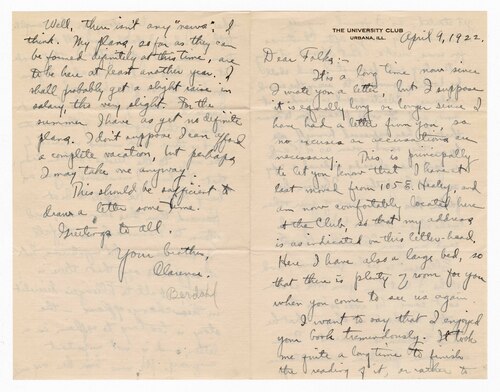 THE UNIVERSITY CLUB
URBANA, ILL.
April 9, 1922.
Dear Folks:-
It is a long time now since
I wrote you a letter, but I suppose
it is equally long or longer since I
have had a letter from you, so
no excuses or accusations are
necessary. This is principally
to let you know that I have at
last moved from 105 E. Healey, and
am now comfortably located here
at the Club, so that my address
is as indicated on this letter-head.
Here I have also a large bed, so
that there is plenty of room for you
when you come to see us again.
I want to say that I enjoyed
your book tremendously. It took
me quite a long time to finish
the reading of it, or rather to
Well, there isn't any "news", I
think. My plans, so far as they can
be formed definitely at this time, are
to be here at least another year. I
shall probably get a slight raise in
salary, tho very slight. For the
summer I have as yet no definite
plans. I don't suppose I can afford
a complete vacation, but perhaps
I may take one anyway.
This should be sufficient to
draw a letter some time.
Greetings to all.
Your brother,
Clarence.
Berdahl